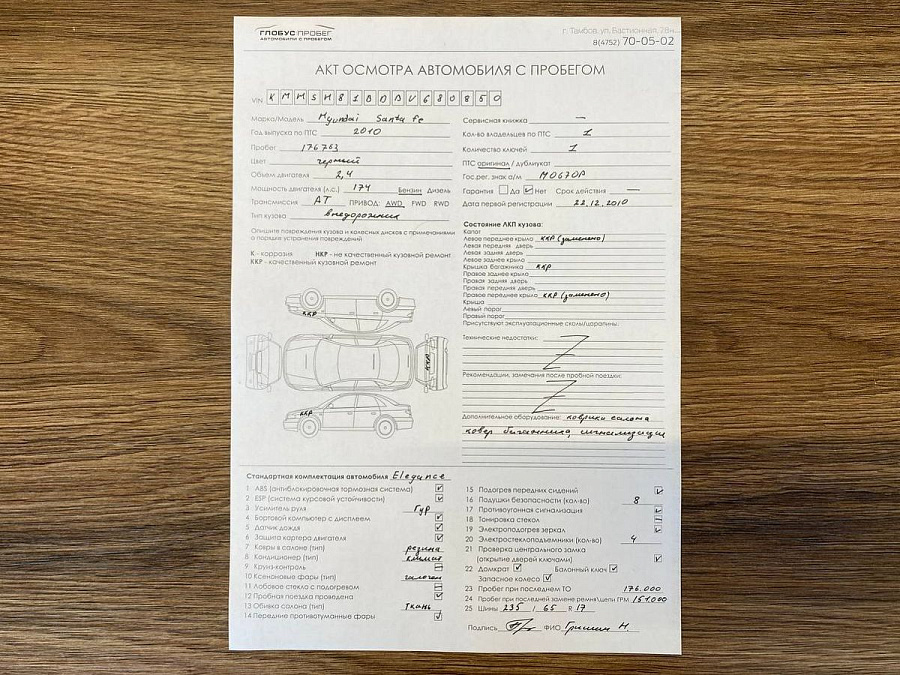 ГЛОБУС ПРОБЕГ
АВТОМОБИЛИ С ПРОБЕГОМ
г. Тамбов, ул. Бастионная, 28н
8(4752) 70-05-02
АКТ ОСМОТРА АВТОМОБИЛЯ С ПРОБЕГОМ
VIN KMHSH81BDBU680850
Марка/Модель Hyundai Santa Fe
Год выпуска по ПТС 2010
Пробег 176763
Цвет черный
Объем двигателя 2,4
Мощность двигателя (л.с.) 174 Бензин Дизель
Трансмиссия АТ ПРИВОД: AWD FWD RWD
Тип кузова внедорожник
Опишите повреждения кузова и колесных дисков с примечаниями
о порядке устранения повреждений
К - коррозия НКР - не качественный кузовной ремонт
ККР - качественный кузовной ремонт
ккр
ккр
ккр
Сервисная книжка —
Кол-во владельцев по ПТС 1
Количество ключей 1
ПТС оригинал / дубликат
Гос.рег. знак а/м М067ОР
Гарантия Да Нет Срок действия —
Дата первой регистрации 22.12.2010
Состояние ЛКП кузова:
Капот
Левое переднее крыло ккр (заменено)
Левая передняя дверь
Левая задняя дверь
Левое заднее крыло
Крышка багажника ккр
Правое заднее крыло
Правая задняя дверь
Правая передняя дверь
Правое переднее крыло ккр (заменено)
Крыша
Левый порог
Правый порог
Присутствуют эксплуатационные сколы/царапины:
Технические недостатки:
Рекомендации, замечания после пробной поездки:
Дополнительное оборудование: коврики салона
ковер багажника, сигнализация
Стандартная комплектация автомобиля Elegance
1 ABS (антиблокировочная тормозная система)
2 ESP (система курсовой устойчивости)
3 Усилитель руля Гур
4 Бортовой компьютер с дисплеем
5 Датчик дождя
6 Защита картера двигателя
7 Ковры в салоне (тип) резина
8 Кондиционер (тип) климат
9 Круиз-контроль
10 Ксеноновые фары (тип) галоген
11 Лобовое стекло с подогревом
12 Пробная поездка проведена
13 Обивка салона (тип) ткань
14 Передние противотуманные фары
15 Подогрев передних сидений
16 Подушки безопасности (кол-во) 8
17 Противоугонная сигнализация
18 Тонировка стекол
19 Электроподогрев зеркал
20 Электростеклоподъемники (кол-во) 4
21 Проверка центрального замка
(открытие дверей ключами)
22 Домкрат Балонный ключ
Запасное колесо
23 Пробег при последнем ТО 176.000
24 Пробег при последней замене ремня\цепи ГРМ 151.000
25 Шины 235 / 65 R 17
Подпись ФИО Гришин Н.